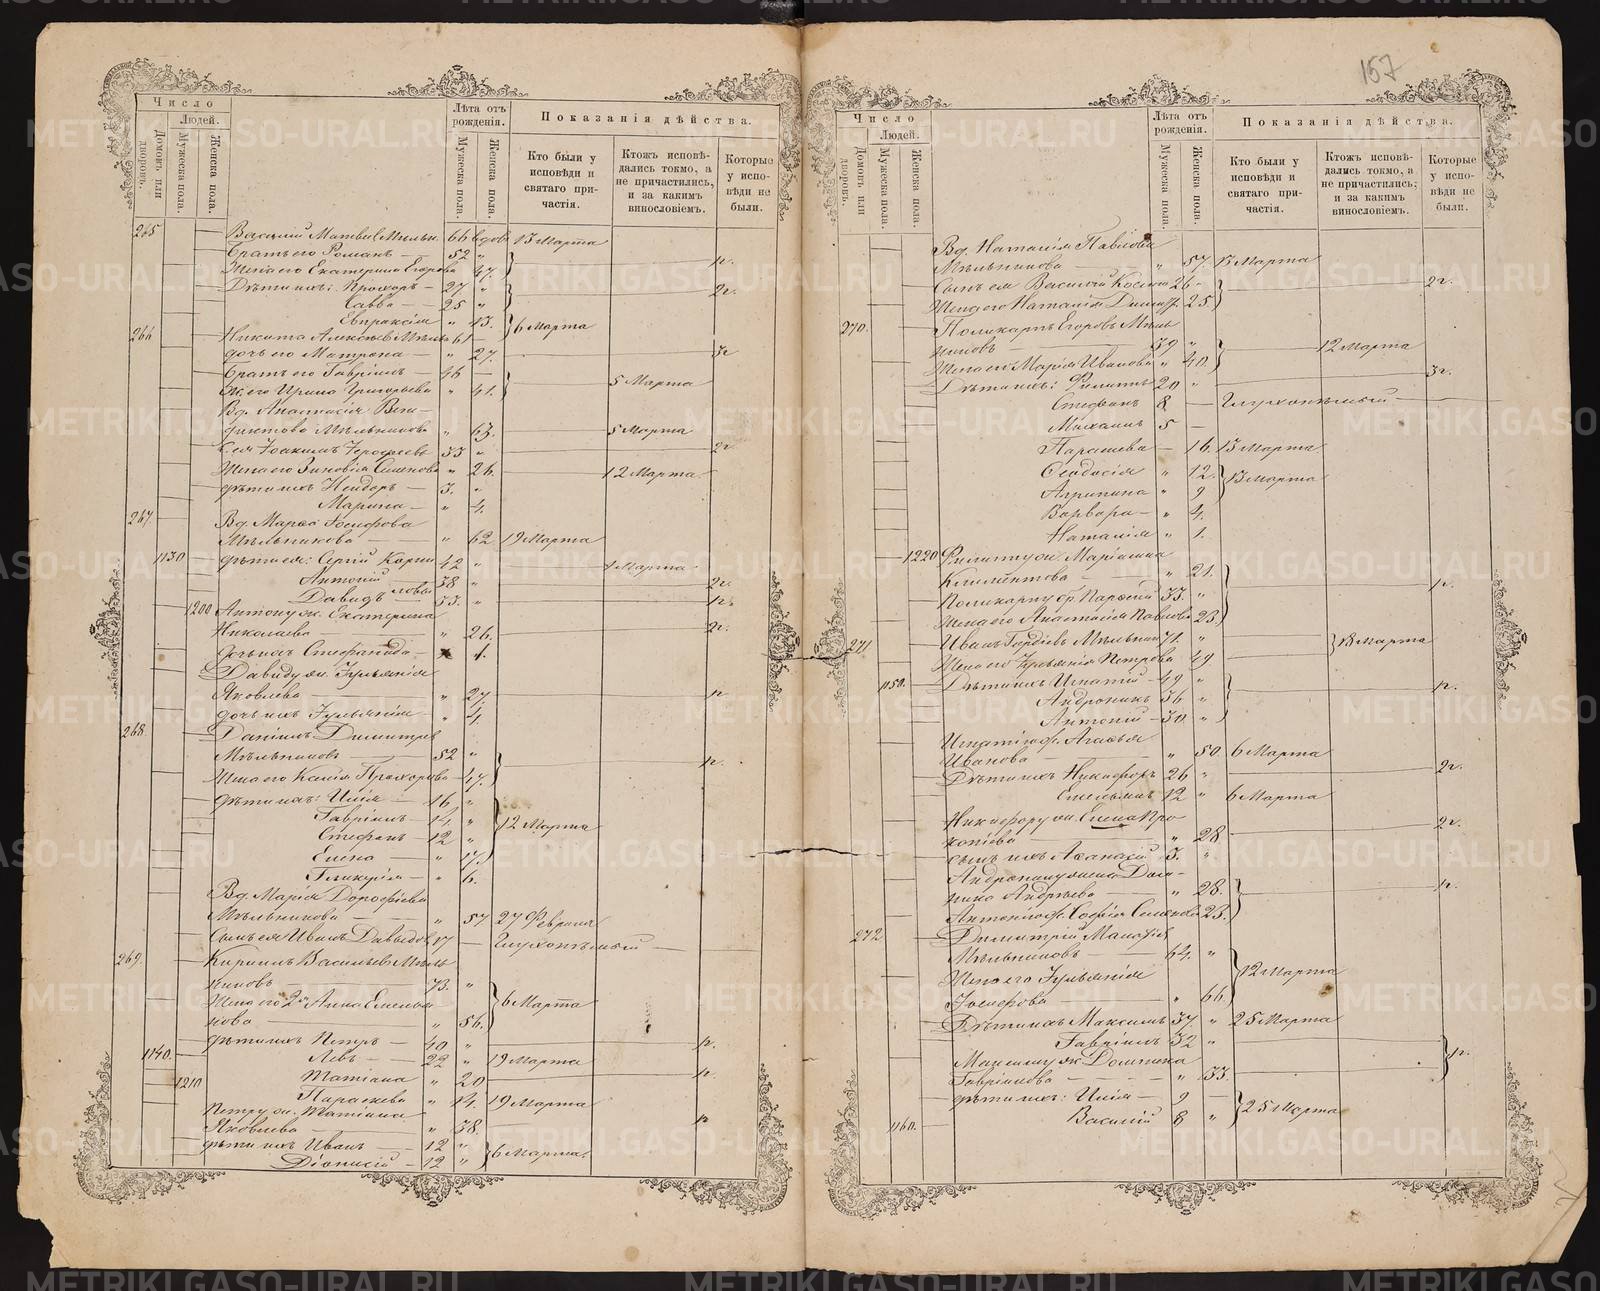 157
Число
Людей.
Домовъ или дворовъ.
Мужеска пола.
Женска пола.
Лѣта отъ рожденія.
Мужеска пола.
Женска пола.
Показанія дѣйства.
Кто были у исповѣди и святаго причастія.
Ктожъ исповѣдались токмо, а не причастились, и за какимъ винословіемъ.
Которые у исповѣди не были.
265 Василій Матвѣевъ Мѣльн. 66 вдовъ 13 Марта
Братъ его Романъ — 52 "
Жена его Екатерина Егорова 47. р.
Дѣти ихъ: Прохоръ — 27 " 2г.
Савва — 25 "
Евпраксія " 13. 6 Марта
266 Никита Алексѣевъ Мѣльн 61 —
дочь его Матрона — " 27. 3г
Братъ его Гавріилъ — 46 —
Ж. его Ирина Григорьева " 41. 5 Марта
Вд. Анастасія Вене-
диктова Мѣльникова " 63. 5 Марта
С. ея Іоакимъ Іерофеевъ 33 " 2г
Жена его Зиновія Семенова " 26. 12 Марта
дѣти ихъ Исидоръ — 3. "
Марина — " 4.
267. Вд. Марѳа Іосифова
Мѣльникова — " 62 19 Марта
1130 дѣти ея: Сергій Карпи 42 " 4 Марта
Антоній ловы 38 " 2г.
Давидъ 33. " р.
1200 Антону ж. Екатерина
Николаева — " 26. 2г.
дочь ихъ Стефанида — 1.
Давиду ж. Іуліянія
Яковлева — " 27. р
дочь ихъ Іуліянія — " 4.
268. Даніилъ Димитріев
Мѣльниковъ — 52 "
Жена его Капія Прохорова — 47. р.
дѣти ихъ: Илія — 16 "
Гавріилъ — 14. " 12 Марта
Стефанъ — 12 "
Елена — " 17.
Гликерія — " 6.
Вд. Марія Дороѳіева
Мѣльникова — " 57 27 Февраля
Сынъ ея Иванъ Давыдов. 17 — Глухонѣмый
269. Кириллъ Васильевъ Мѣль
никовъ — 73. "
Жена его 2я Анна Емелья
нова — " 56. 6 Марта
дѣти ихъ Петръ — 40 " р.
1140. Левъ — 22 " 19 Марта
1210 Татіана " 20 р.
Параскева " 14. 19 Марта
Петру ж. Татіана
Яковлева — " 38 р
дѣти ихъ Иванъ — 12 "
Діонисій — 12 " 6 Марта.
Число
Людей.
Домовъ или дворовъ.
Мужеска пола.
Женска пола.
Лѣта отъ рожденія.
Мужеска пола.
Женска пола.
Показанія дѣйства.
Кто были у исповѣди и святаго причастія.
Ктожъ исповѣдались токмо, а не причастились; и за какимъ винословіемъ.
Которые у исповѣди не были.
Вд. Наталія Павлова
Мѣльникова " 57. 13 Марта
Сынъ ея Василій Косьмин 26 " 2г.
Жена его Наталія 25
270. Поликарпъ Егоровъ Мѣль
никовъ 39 " 12 Марта
Жена его Марія Иванова " 40. 3г.
Дѣти ихъ: Филиппъ 20 "
Стефанъ 8 — Глухонѣмый —
Михаилъ 5 —
Параскева — 16. 13 Марта.
Ѳеодосія " 12. 13 Марта
Агрипина " 9
Варвара — " 4.
Наталія " 1.
1220 Филиппу ж. Маріамна
Климентова — " 21. р.
Поликарпу бр. Парѳеній 33. "
Жена его Анастасія Павлова 23.
271 Иванъ Гордіевъ Мѣльник 71. "
Жена его Іуліянія Петрова 49 18 Марта
1150. Дѣти ихъ Игнатій — 49 " р.
Андроникъ 36 "
Антоній — 30. "
Игнатію ж. Агаѳья
Иванова — " 50. 6 Марта
Дѣти ихъ Никифоръ 26 " 2г.
Емельянъ 12 " 6 Марта
Никифору ж. Елена Про
копіева — " 28 2г.
сынъ ихъ Аѳанасій 3. "
Андронику жена Дом-
ника Андреева — " 28. р.
Антонію ж. Софія Семенова 23.
272 Димитрій Макс
Мѣльниковъ — 64. "
Жена его Іуліянія 12 Марта
Іосифова — " 66.
Дѣти ихъ Максимъ 37 " 25 Марта
Гавріилъ 32 " р.
Максиму ж. Домника
Гавріилова — " 33.
дѣти ихъ: Илія — 9 — 25 Марта
1160. Василій 8 "
METRIKI.GASO-URAL.RU